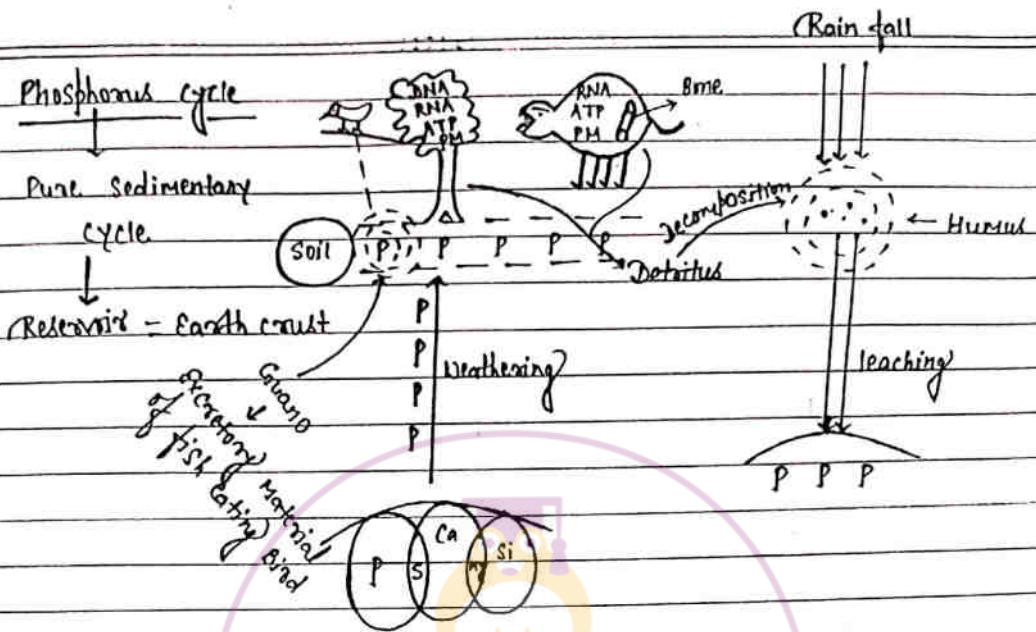 Rain fall
Phosphorus cycle
Pure sedimentary
cycle
Reservoir = Earth crust
DNA
RNA
ATP
PM
RNA
ATP
PM
Bone
Soil
P P P P P
Detritus
Decomposition
Humus
leaching
P P P
P
P
P
P
Weathering
Guano
Excretory Material
of fish Eating Bird
P S Ca Si